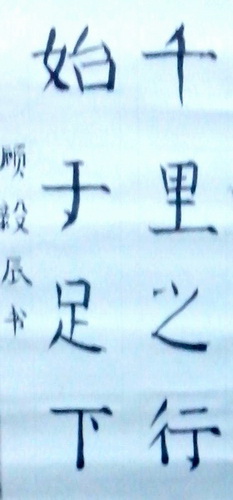 千里之行
始于足下
顾毅辰书